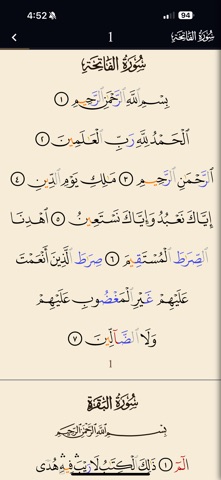 4:52
94
1
سُورَةُ الفَاتِحَةِ
سُورَةُ الفَاتِحَةِ
بِسْمِ ٱللَّهِ ٱلرَّحْمَٰنِ ٱلرَّحِيمِ ١
ٱلْحَمْدُ لِلَّهِ رَبِّ ٱلْعَٰلَمِينَ ٢
ٱلرَّحْمَٰنِ ٱلرَّحِيمِ ٣ مَٰلِكِ يَوْمِ ٱلدِّينِ ٤
إِيَّاكَ نَعْبُدُ وَإِيَّاكَ نَسْتَعِينُ ٥ ٱهْدِنَا
ٱلصِّرَٰطَ ٱلْمُسْتَقِيمَ ٦ صِرَٰطَ ٱلَّذِينَ أَنْعَمْتَ
عَلَيْهِمْ غَيْرِ ٱلْمَغْضُوبِ عَلَيْهِمْ
وَلَا ٱلضَّآلِّينَ ٧
1
سُورَةُ البَقَرَةِ
بِسْمِ ٱللَّهِ ٱلرَّحْمَٰنِ ٱلرَّحِيمِ
الٓمٓ ١ ذَٰلِكَ ٱلْكِتَٰبُ لَا رَيْبَ ۛ فِيهِ ۛ هُدًى